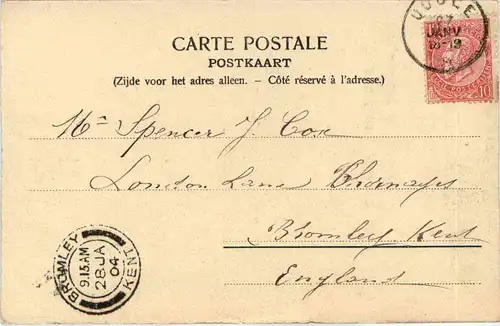 UCCLE
27
JANV
18-19
10
CARTE POSTALE
POSTKAART
(Zijde voor het adres alleen. – Côté réservé à l'adresse.)
Mr Spencer J. Cox
London Lane
Bromley Kent
England
BROMLEY KENT
9.15 AM
28 JA
04